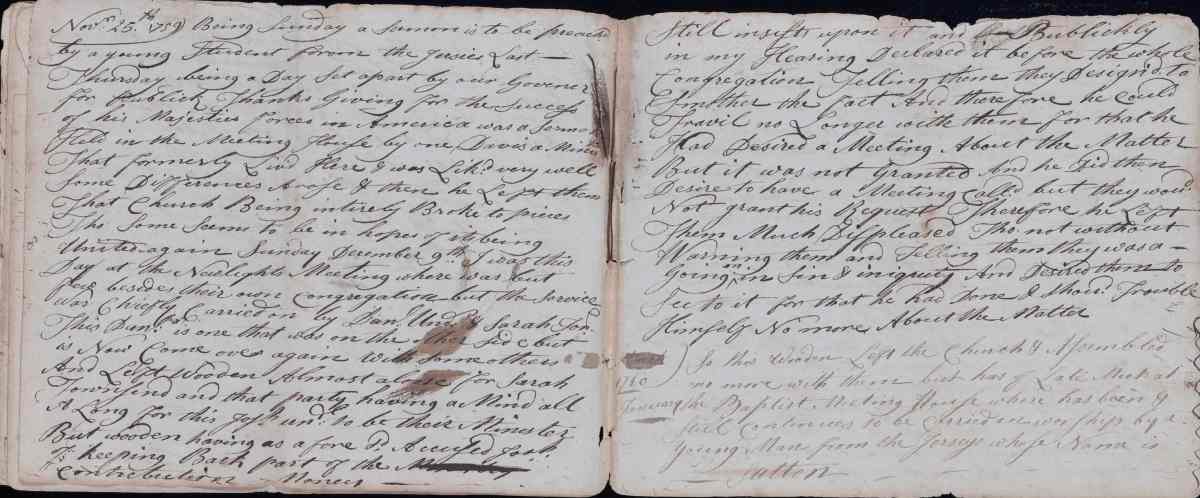 Nov.r 25.th 1759 Being Sunday a sermon is to be preach
by a young Student from the Jersies Last
Thursday being a Day Set apart by our Govener
for Publick Thanks Giving for the Success
of his Majesties forces in America was a Sermon
Held in the Meeting House by one Davis a
That formerly Liv'd Here & was Lik'd very well
Some Differences Arose & then he Left them
That Church Being intirely Broke to pieces
Tho Some Seems to be in hopes of its being
United again Sunday December 9th I was this
Day at the Newlights Meeting where was but
few besides their own Congregation but the Service
was Chiefly Carried on by Dan.l Und.d & Sarah Ton.
This Dan.l is one that was on the other Side but
is Now Come over again With some others
And Left Wooden Almost alone for Sarah
Townsend and that party having a Mind all
A Long for this Jos.h und.d to be their Minister
But wooden having as a fore D. Accused Josh
of keeping Back part of the
Contribution Money
Still insists upon it and Publickly
in my Hearing Declared it before the whole
Congregation Telling them they Design'd to
Smother the fact And therefore he could
Travil no Longer with them for that he
Had Desired a Meeting About the Matter
But it was not Granted And he Did then
Desire to have a Meeting Call'd but they wou'd
Not grant his Request Therefore he Left
Them Much Displeased Tho not without
Warning them and Telling them they was a
Going on in Sin & iniquity And Desired them to
See to it for that he had Done & Shou'd Trouble
Himself No more About the Matter
1760
January
So this Wooden Left the Church & Assembled
no more with them but has of Late Meet at
the Baptist Meeting House where has been &
Still Continues to be Carried on worship by a
Young Man from the Jerseys whose Name is
Sutton